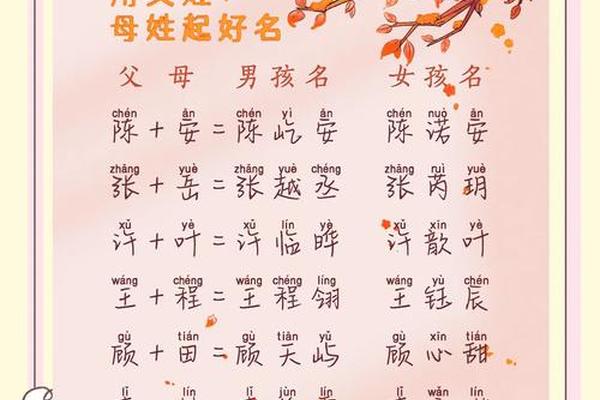 母姓起好名
父 母 男孩名 女孩名
chén ān chén yì ān chén nuò ān
陈+安=陈屹安 陈诺安
zhāng yuè zhāng yuè chéng zhāng ruì yuè
张+岳=张越丞 张芮玥
xǔ yè xǔ lín yè xǔ xīn yè
许+叶=许临晔 许歆叶
wáng chéng wáng chéng líng wáng yù chén
王+程=王程翎 王钰辰
gù tián gù tiān yǔ gù xīn tián
顾+田=顾天屿 顾心甜